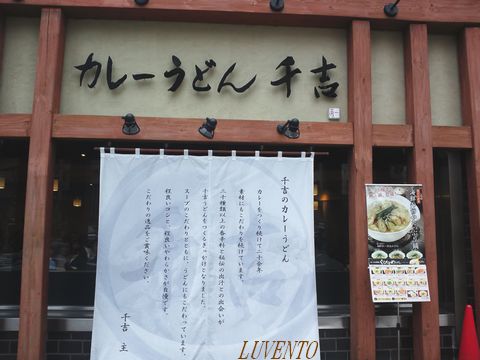 カレーうどん 千吉
千吉のカレーうどん
カレーをつくり続けて二十余年
素材にもこだわりを続けています。
二十種類以上の香辛料と秘伝の出汁との出会いが
千吉うどんをつくるきっかけとなりました。
スープのこだわりとともに、うどんにもこだわっています。
程良いコシと、程良いやわらかさが自慢です。
こだわりの逸品をご賞味ください。
千吉 主
LUVENTO